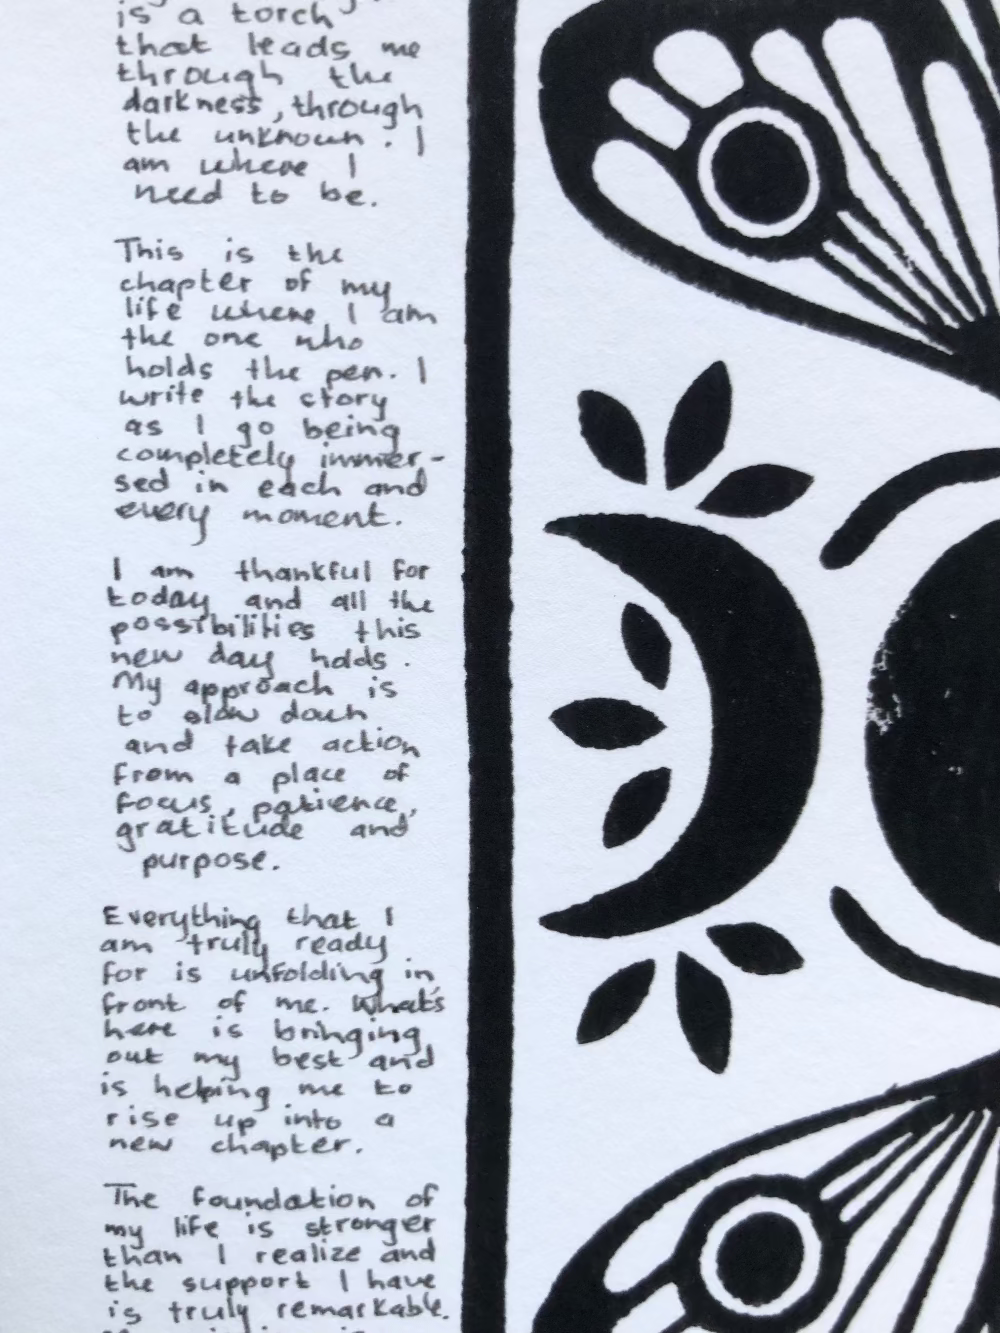 is a torch
that leads me
through the
darkness, through
the unknown. I
am where I
need to be.
This is the
chapter of my
life where I am
the one who
holds the pen. I
write the story
as I go being
completely immer-
sed in each and
every moment.
I am thankful for
today and all the
possibilities this
new day holds.
My approach is
to slow down
and take action
from a place of
focus, patience,
gratitude and
purpose.
Everything that I
am truly ready
for is unfolding in
front of me. What's
here is bringing
out my best and
is helping me to
rise up into a
new chapter.
The foundation of
my life is stronger
than I realize and
the support I have
is truly remarkable.